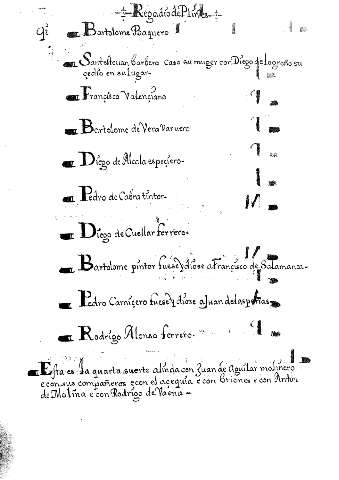 Regadío de Pinos
Bartolome Baquero
Santesteuan barbero caso su muger con Diego de logroño su
çedio en su lugar
Francisco Valençiano
Bartolome de Vera varvero
Diego de Alcala espeçiero
Pedro de Cabra tintor
Diego de Cuellar ferrero
Bartolome pintor fuese y diose a Francisco de Salamanca
Pedro Carniçero fuese y diose a Juan de las peñas
Rodrigo Alonso ferrero
Esta es la quarta suerte alinda con Juan de Aguilar molinero
e con sus compañeros e con el açequia e con Briones e con Anton
de Molina e con Rodrigo de Vaena